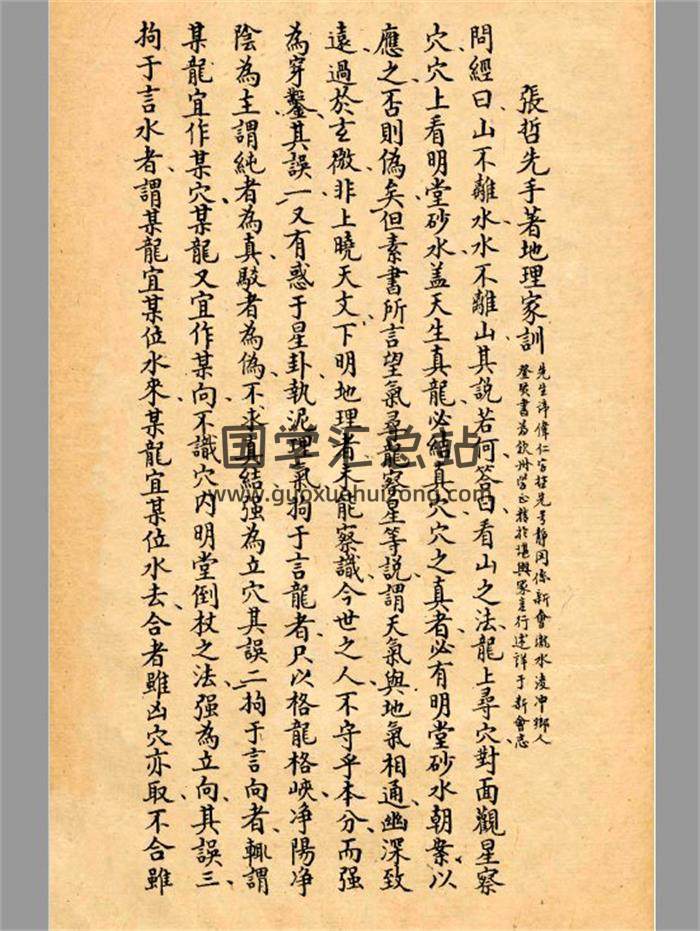 張哲先手著地理家訓
先生諱偉仁字哲先号靜岡係新會瀧水淩冲鄉人
登賢書为欽州學正精於堪輿家言行述詳于新會志
問經曰山不離水水不離山其說若何答曰看山之法龍上尋穴對面觀星察
穴穴上看明堂砂水盖天生真龍必結真穴穴之真者必有明堂砂水朝案以
應之否則偽矣但素書所言望氣尋龍察星等説謂天氣與地氣相通幽深致
遠過於玄微非上曉天文下明地理者未能察識今世之人不守乎本分而强
為穿鑿其誤一又有惑于星卦執泥理氣拘于言龍者只以格龍格峽净陽净
陰為主謂純者為真駁者為偽不求真結强為立穴其誤二拘于言向者輒謂
某龍宜作某穴某龍又宜作某向不識穴内明堂倒杖之法强為立向其誤三
拘于言水者謂某龍宜某位水來某龍宜某位水去合者雖凶穴亦取不合雖
国学汇总站
www.guoxuehuizong.com